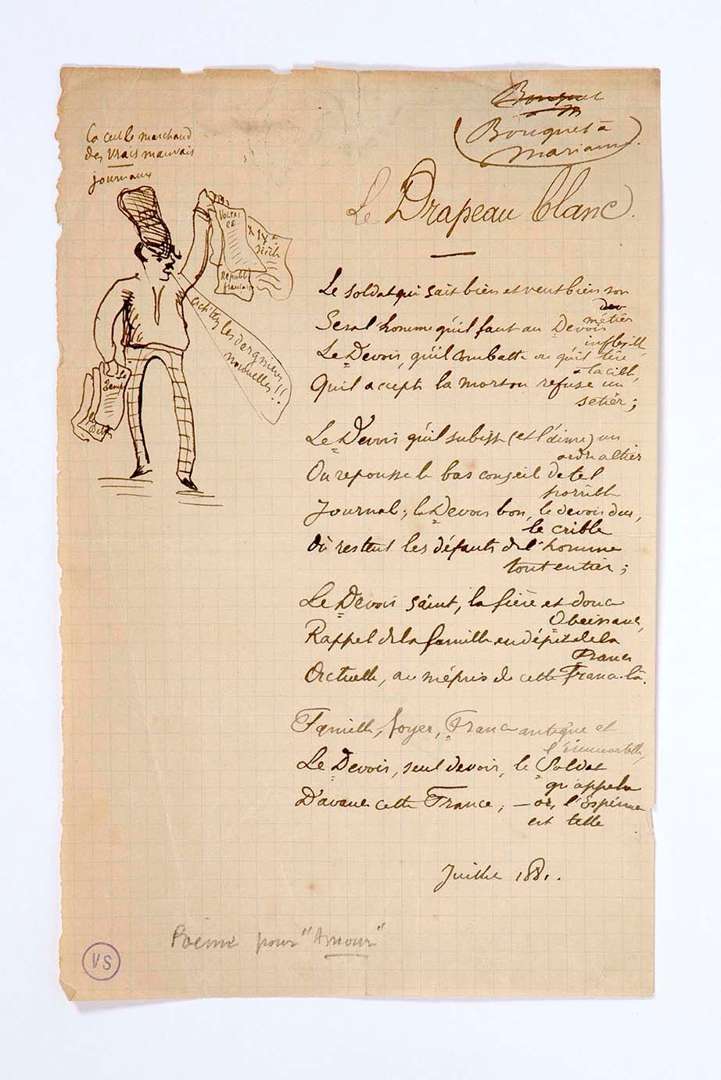 Bouquet
(Bouquet à
Marianne.)
Ça c'est le marchand
des vrais mauvais
journaux
VOLTAI
RE
XIX
siècle
Républi
française
achetez les dergnières
nouvelles!!
Le
Temps
Le Drapeau blanc.
Le soldat qui sait bien et veut bien son
métier
Sera l'homme qu'il faut au Devoir
inflexible,
Le Devoir, qu'il combatte ou qu'il tire
à la cible,
Qu'il accepte la mort ou refuse un
setier;
Le Devoir qu'il subisse (et l'aime) un
ordre altier
Ou repousse le bas conseil de tel
horrible
Journal; le Devoir bon, le devoir dur,
le crible
Où restent les défauts de l'homme
tout entier;
Le Devoir saint, la fière et douce
Obéissance,
Rappel de la famille en dépit de la
France
Actuelle, au mépris de cette France-là.
Famille, foyer, France antique et
l'immortelle,
Le Devoir, seul devoir, le Soldat
qu'appela
D'avance cette France; — or, l'espérance
est telle
Juillet 1881.
Poème pour "Amour"
VS